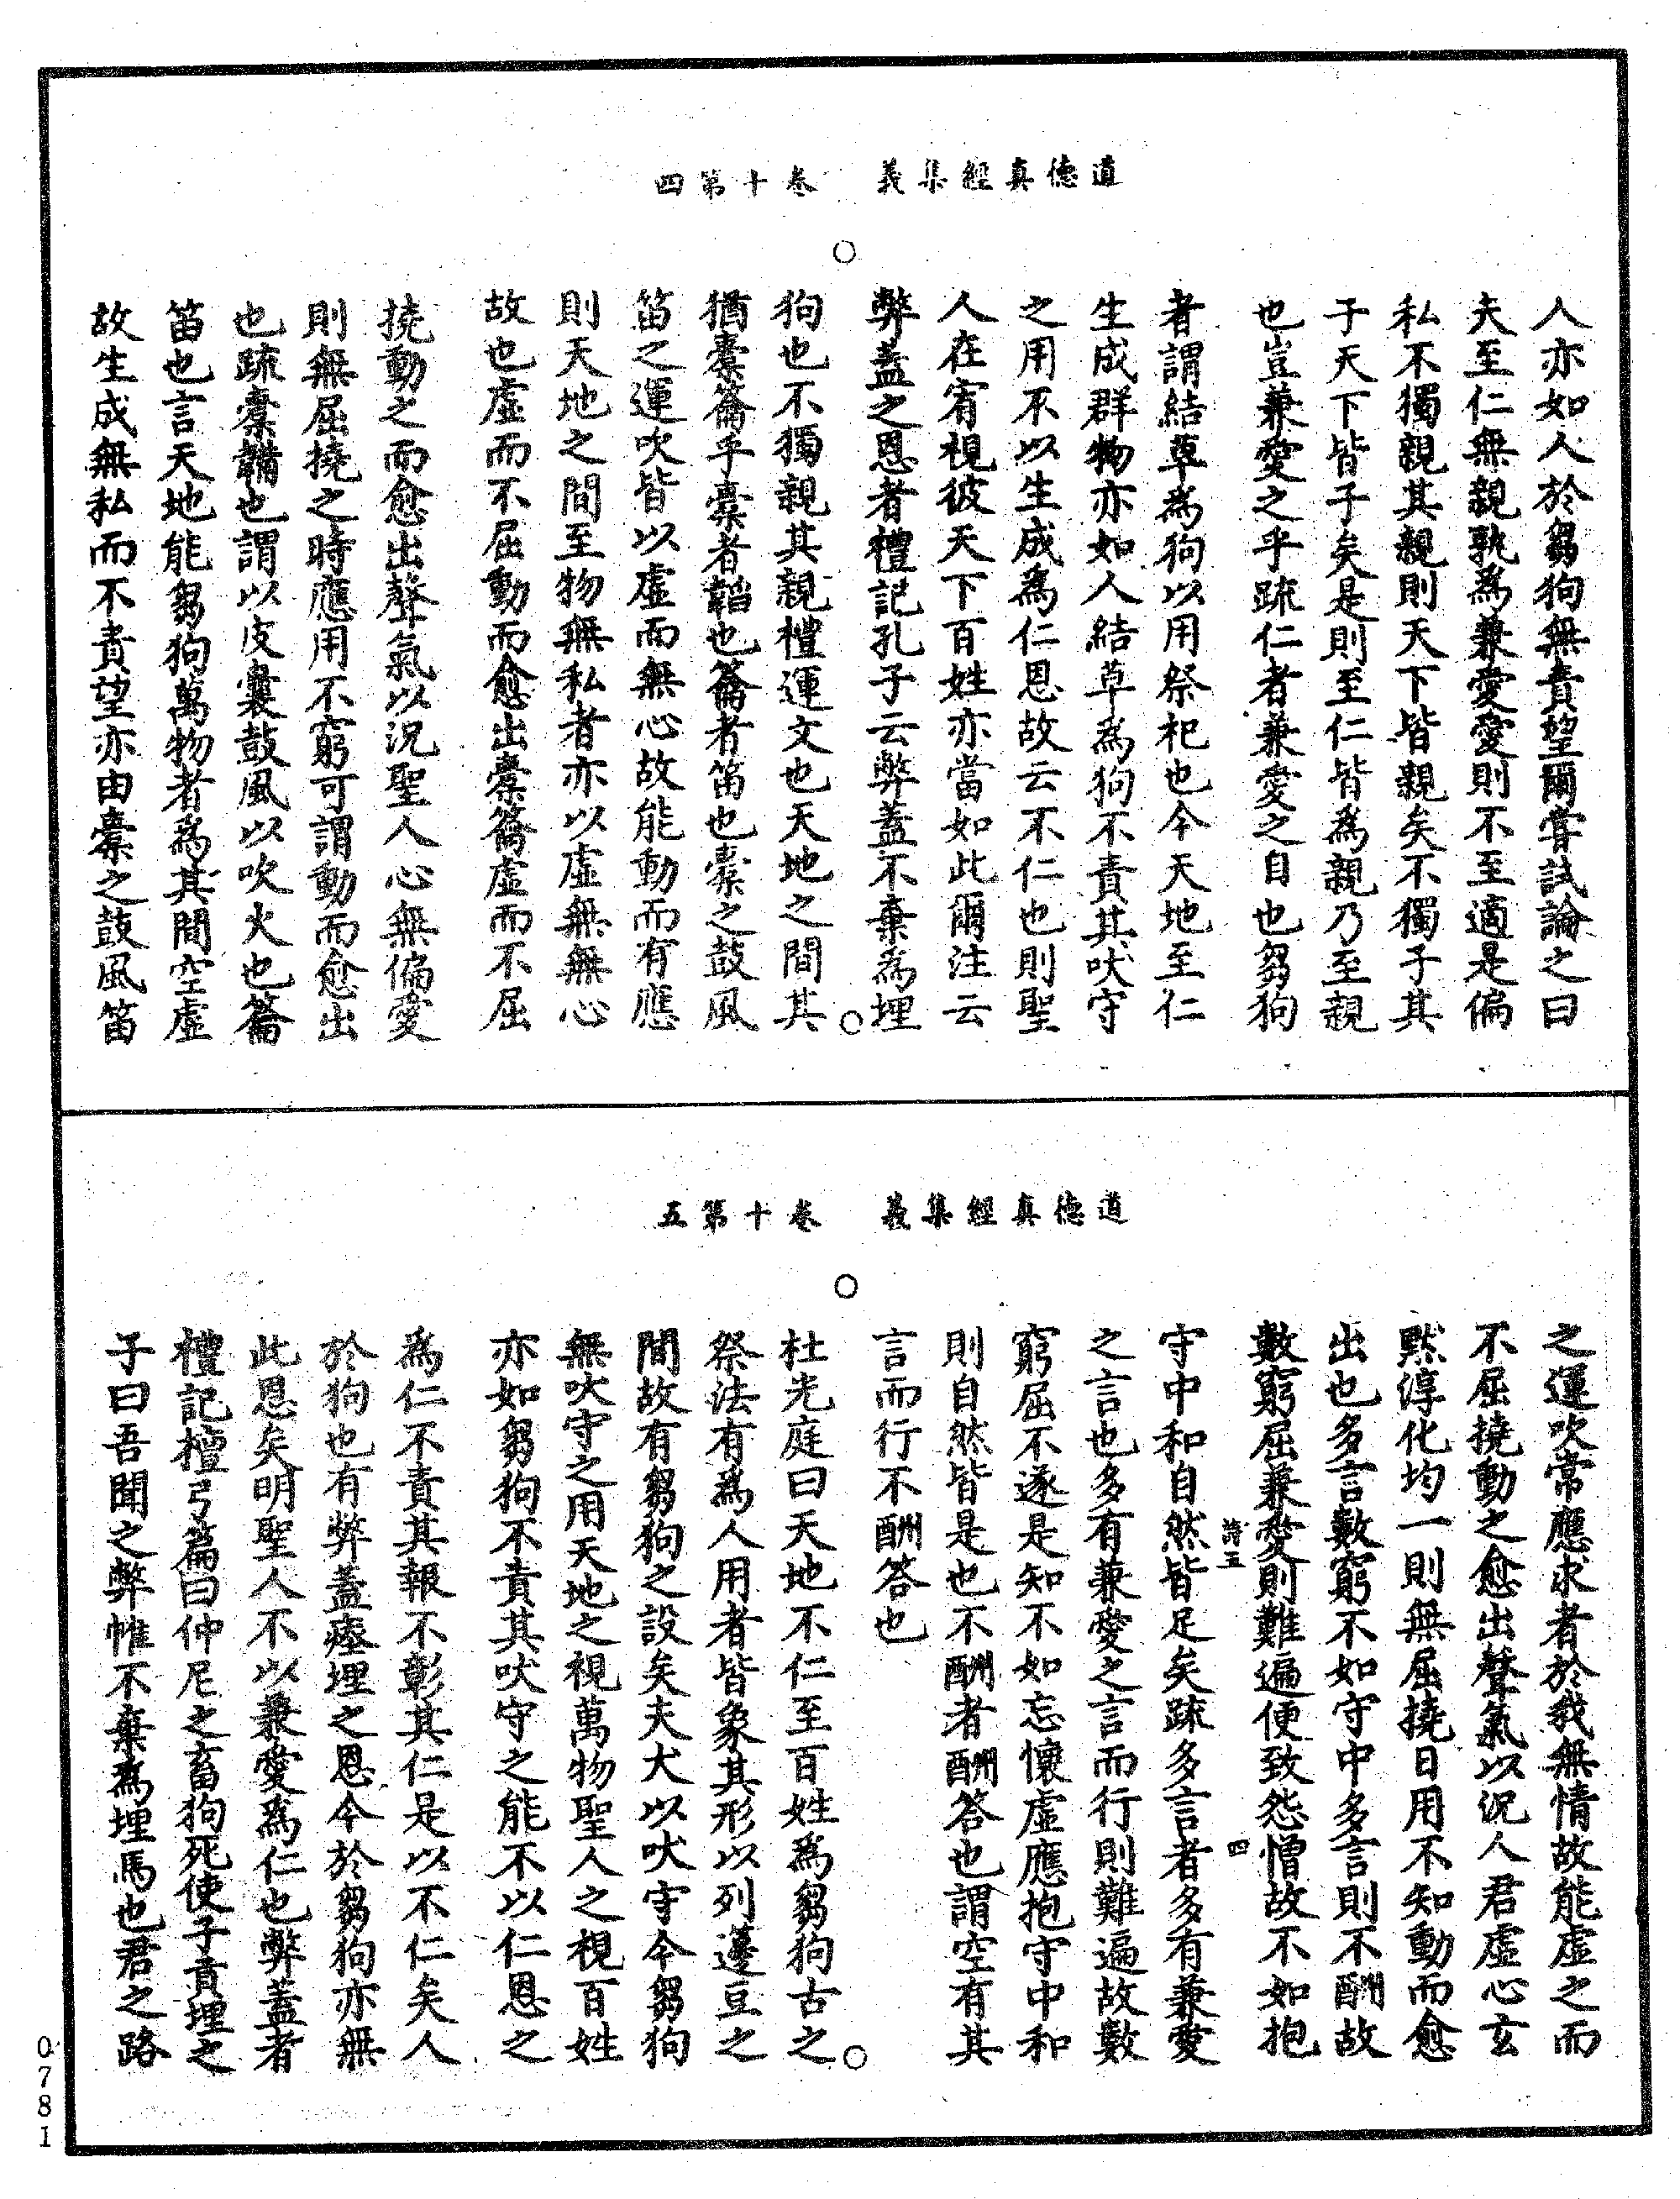 道德真經集義　卷十第四
人亦如人於芻狗無責望爾嘗試論之曰
夫至仁無親孰為兼愛愛則不至適是偏
私不獨親其親則天下皆親矣不獨子其
子天下皆子矣是則至仁皆為親乃至親
也豈兼愛之乎疏仁者兼愛之自也芻狗
者謂結草為狗以用祭祀也今天地至仁
生成群物亦如人結草為狗不責其吠守
之用不以生成為仁恩故云不仁也則聖
人在宥視彼天下百姓亦當如此爾注云
弊蓋之恩者禮記孔子云弊蓋不棄為埋
狗也不獨親其親禮運文也天地之間其
猶橐籥乎橐者韜也籥者笛也橐之鼓風
笛之運吹皆以虛而無心故能動而有應
則天地之間至物無私者亦以虛無無心
故也虛而不屈動而愈出橐籥虛而不屈
撓動之而愈出聲氣以況聖人心無偏愛
則無屈撓之時應用不窮可謂動而愈出
也疏橐鞴也謂以皮囊鼓風以吹火也籥
笛也言天地能芻狗萬物者為其間空虛
故生成無私而不責望亦由橐之鼓風笛
道德真經集義　卷十第五
之運吹常應求者於我無情故能虛之而
不屈撓動之愈出聲氣以況人君虛心玄
默淳化均一則無屈撓日用不知動而愈
出也多言數窮不如守中多言則不酬故
數窮屈兼愛則難遍便致怨憎故不如抱
守中和自然皆足矣疏多言者多有兼愛
之言也多有兼愛之言而行則難遍故數
窮屈不遂是知不如忘懷虛應抱守中和
則自然皆是也不酬者酬答也謂空有其
言而行不酬答也
杜光庭曰天地不仁至百姓為芻狗古之
祭法有為人用者皆象其形以列籩豆之
間故有芻狗之設矣夫犬以吠守今芻狗
無吠守之用天地之視萬物聖人之視百姓
亦如芻狗不責其吠守之能不以仁恩之
為仁不責其報不彰其仁是以不仁矣人
於狗也有弊蓋瘞埋之恩今於芻狗亦無
此恩矣明聖人不以兼愛為仁也弊蓋者
禮記檀弓篇曰仲尼之畜狗死使子貢埋之
子曰吾聞之弊帷不棄為埋馬也君之路
四
0781